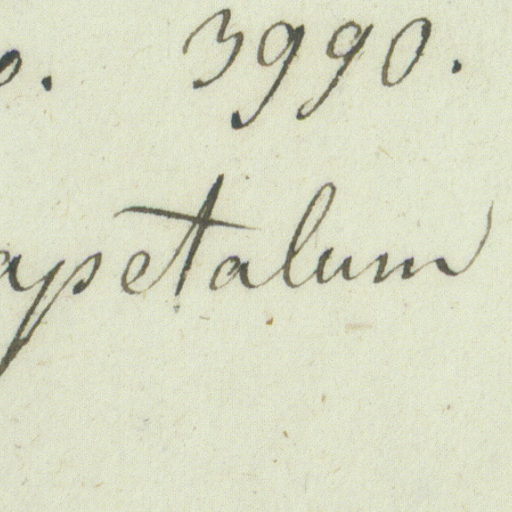 o. 3990.
apetalum